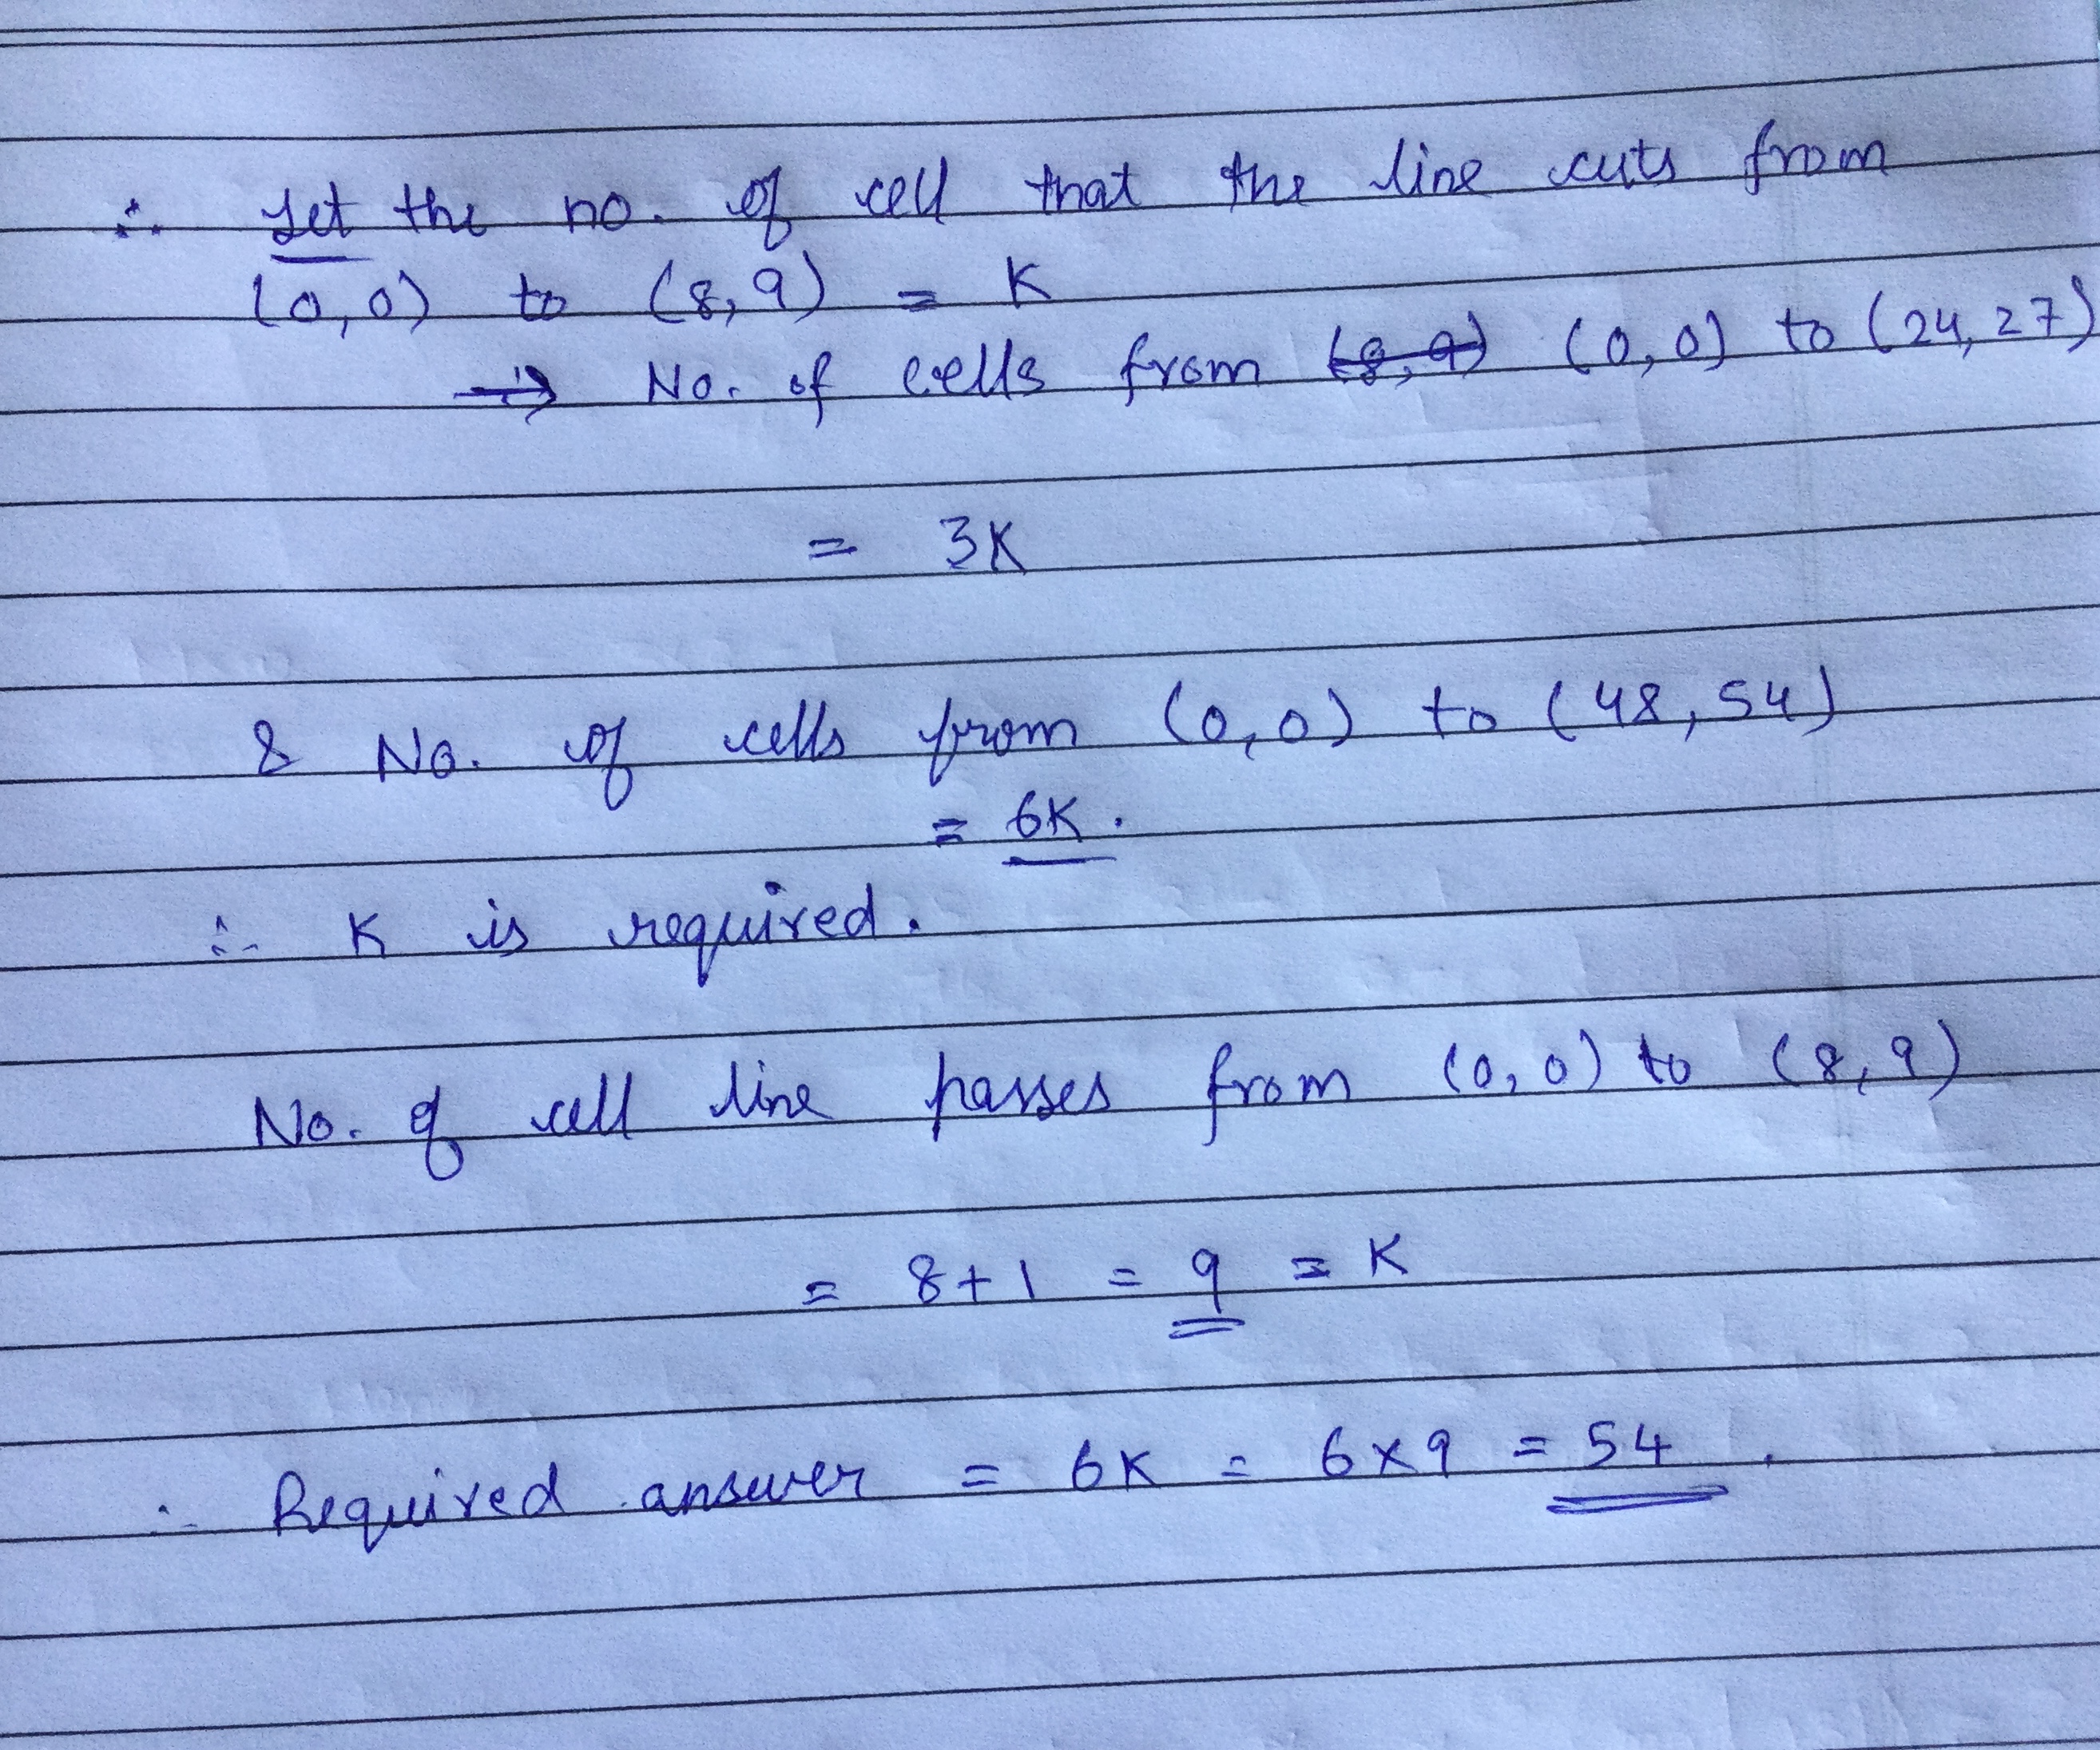 ∴ Let the no. of cell that the line cuts from
(0,0) to (8,9) = K
→ No. of cells from (8,9) (0,0) to (24,27)
= 3K
& No. of cells from (0,0) to (48,54)
= 6K.
∴ K is required.
No. of cell line passes from (0,0) to (8,9)
= 8+1 = 9 = K
∴ Required answer = 6K = 6×9 = 54.